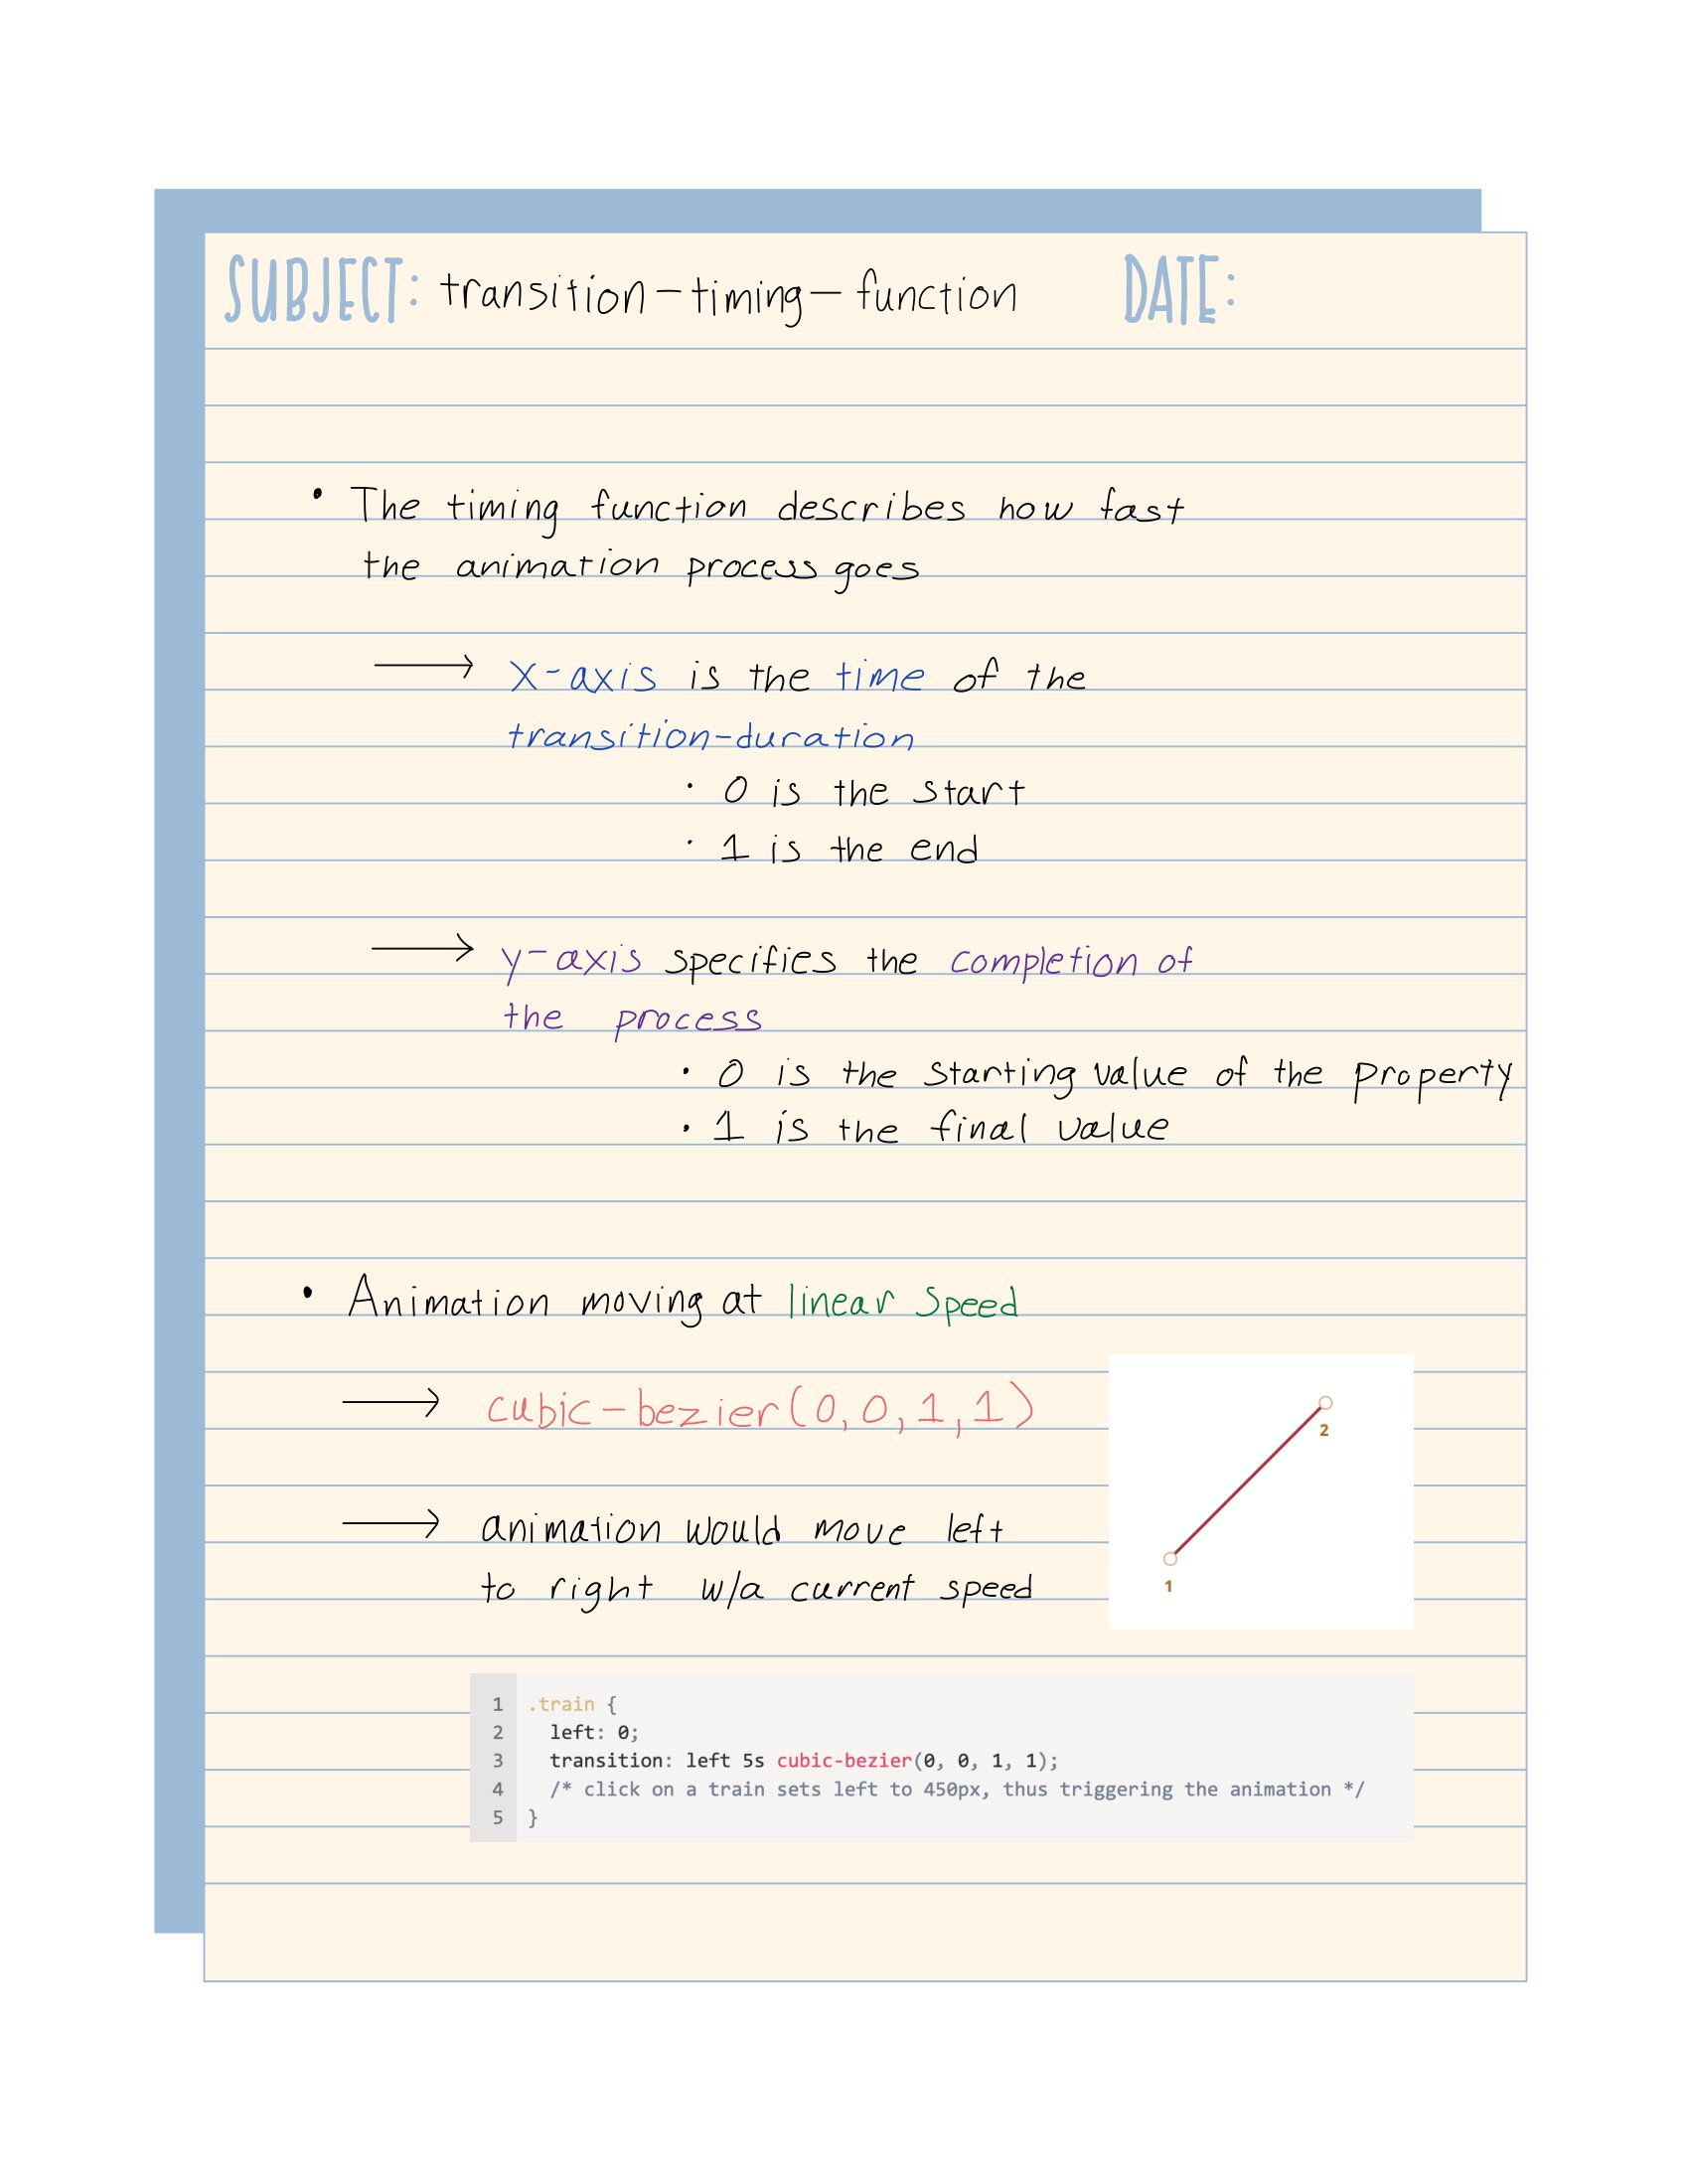 SUBJECT: transition-timing-function DATE:
• The timing function describes how fast
the animation process goes
→ x-axis is the time of the
transition-duration
• 0 is the start
• 1 is the end
→ y-axis specifies the completion of
the process
• 0 is the starting value of the property
• 1 is the final value
• Animation moving at linear speed
→ cubic-bezier(0,0,1,1)
2
→ animation would move left
to right w/a current speed
1
1 .train {
2 left: 0;
3 transition: left 5s cubic-bezier(0, 0, 1, 1);
4 /* click on a train sets left to 450px, thus triggering the animation */
5 }